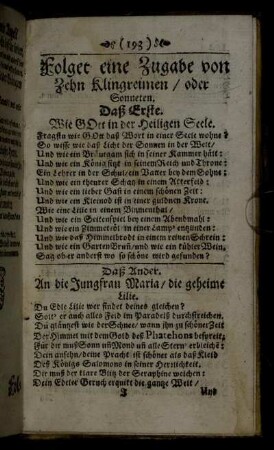 (193)
Folget eine Zugabe von
Zehn Klingreimen / oder
Sonneten.
Daß Erste.
Wie GOtt in der Heiligen Seele.
Fragstu wie GOtt daß Wort in einer Seele wohne?
So wisse wie daß Licht der Sonnen in der Welt/
Und wie ein Bräutgam sich in seiner Kammer hält:
Und wie ein König sitzt in seinem Reich und Trone:
Ein Lehrer in der Schul / ein Vatter bey dem Sohne:
Und wie ein theurer Schatz in einem Ackerfeld:
Und wie ein lieber Gast in einem schönen Zelt:
Und wie ein Kleinod ist in einer guldnen Krone.
Wie eine Lilie in einem Blumenthal/
Und wie ein Seitenspiel bey einem Abendmahl:
Und wie ein Zimmetöl in einer Lamp enzunden:
Und wie daß Himmelbrodt in einem reinen Schrein:
Und wie ein Garten Brun / und wie ein kühler Wein:
Sag ober anderst wo so schöne wird gefunden?
Daß Ander.
An die Jungfrau Maria / die geheime
Lilie.
Du Edle Lilie wer findet deines gleichen?
Solt er auch alles Feld im Paradeiß durchstreichen.
Du gläntzest wie der Schnee / wann ihn zu schöner Zeit
Der Himmel mit dem Gold deß Phaethons
Für dir muß Sonn und Mond und alle Stern erbleichē:
Dein ansehn / deine Pracht ist schöner als daß Kleid
Deß Königs Salomons in seiner Herrlichkeit.
Dir muß der klare Blitz der Seraphine weichen:
Dein Edler Geruch erquikt die gantze Welt/
Und